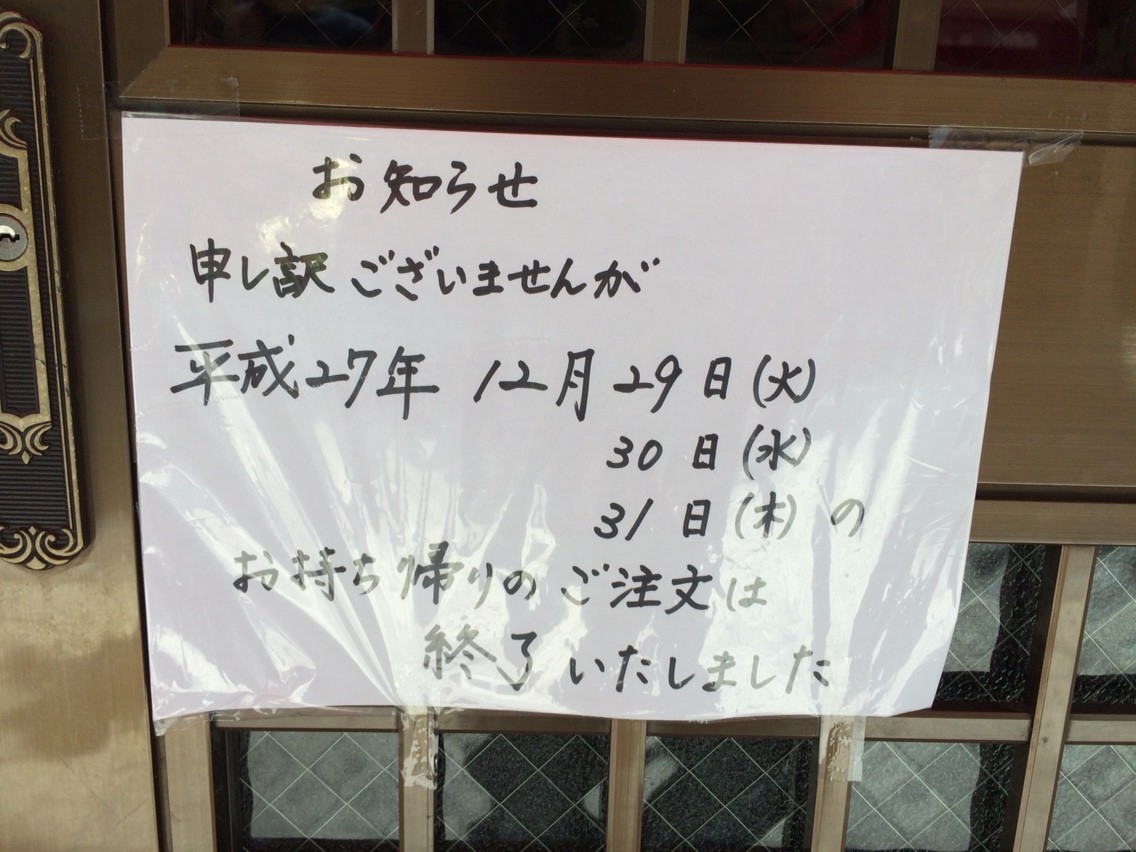 お知らせ
申し訳ございませんが
平成27年 12月29日(火)
30日(水)
31日(木)の
お持ち帰りのご注文は
終了いたしました